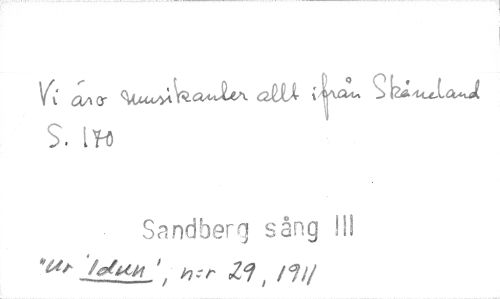 Vi äro musikanter allt ifrån Skåneland
S. 170
Sandberg sång III
"Ur 'Idun', n:r 29, 1911